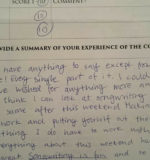 SCORE 1-10: COMMENT:
10
10
VIDE A SUMMARY OF YOUR EXPERIENCE OF THE CO
have anything to say except for
e! Every single part of it. I could
ve wished for anything more and
think I can look at songwriting
same after this weekend
work and putting yourself out there
thing I do have to work with
erything about this weekend
songwriting is fun and